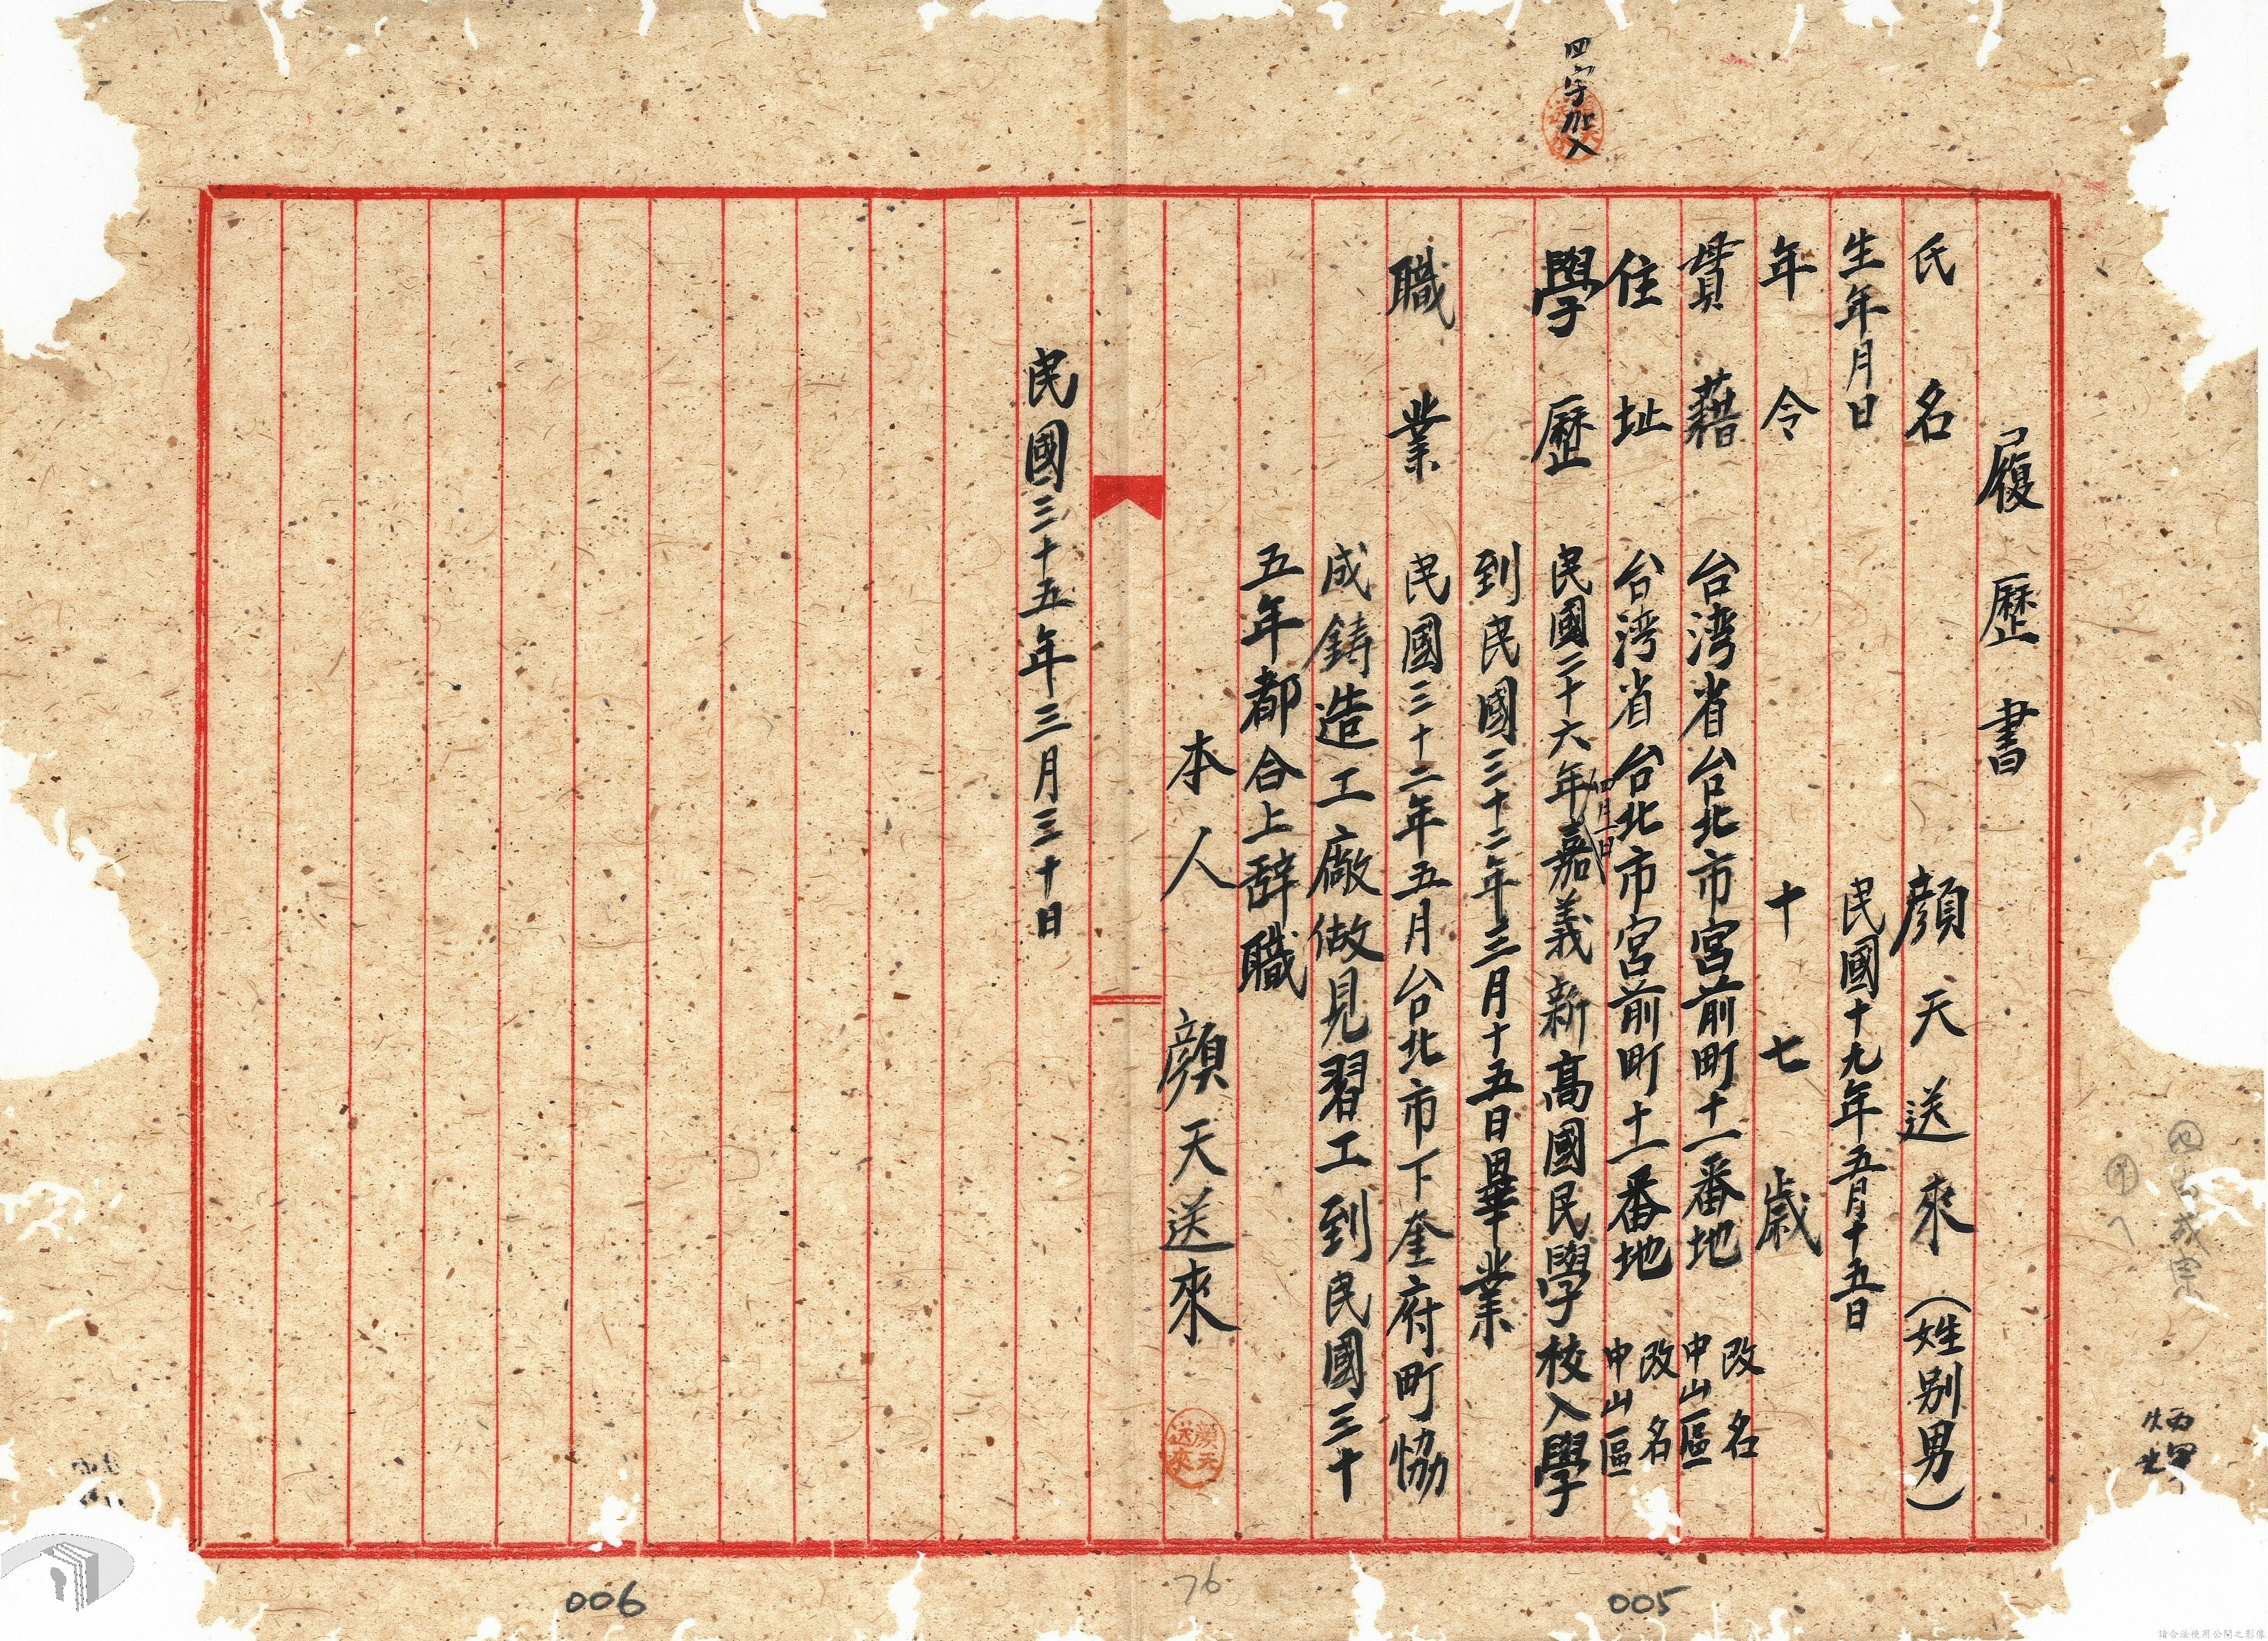 四字加入
履歷書
氏名 顏天送來(姓別男)
生年月日 民國十九年五月十五日
年令 十七歲
貫藉 台湾省台北市宮前町十一番地 改名中山區
住址 台湾省台北市宮前町十一番地 改名中山區
學歷 民國二十六年四月一日嘉義新高國民學校入學
到民國三十二年三月十五日畢業
職業 民國三十二年五月台北市下奎府町協
成鋳造工廠做見習工到民國三十
五年都合上辞職
本人 顏天送來
顏天送來
民國三十五年三月三十日
005
76
006
請合法使用公開之影像